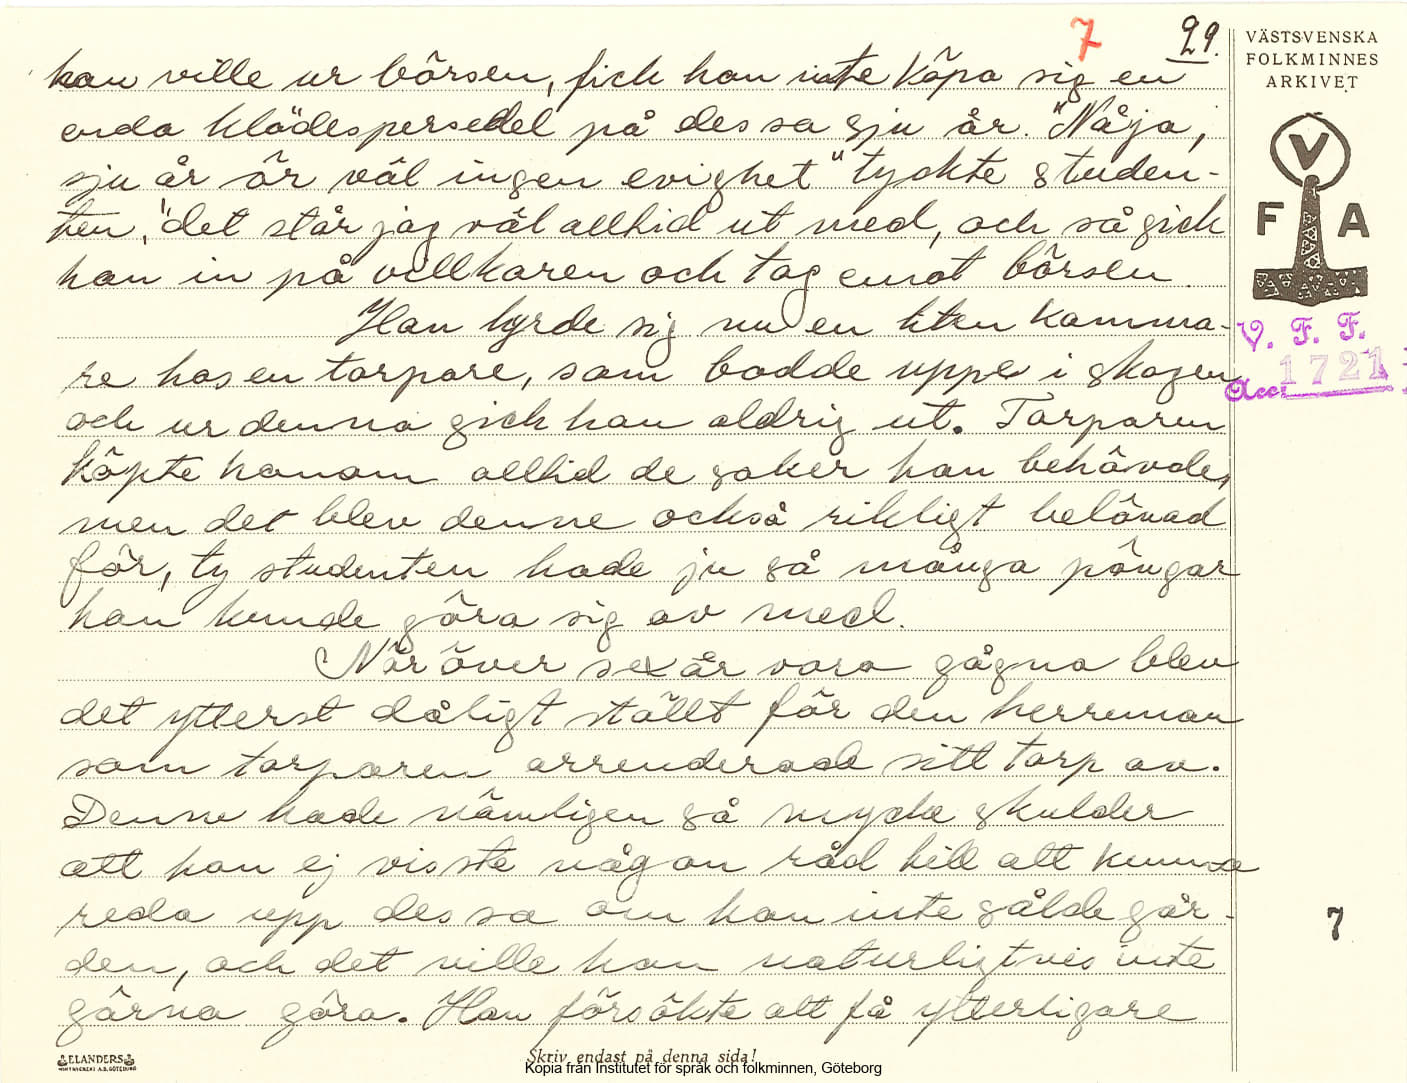 7 29.
VÄSTSVENSKA
FOLKMINNES
ARKIVET
han ville ur börsen, fick han inte köpa sig en
enda klädespersedel på dessa sju år. "Nåja,
sju år är väl ingen evighet" tyckte studen-
ten, "det står jag väl alltid ut med, och så gick
han in på villkaren och tog emot börsen.
Han hyrde sig nu en liten kamma-
re hos en torpare, som bodde uppe i skogen
och ur denna gick han aldrig ut. Torparen
köpte honom alltid de saker han behövde,
men det blev denne också rikligt belönad
för, ty studenten hade ju så många pängar
han kunde göra sig av med.
När över sex år voro gågna blev
det ytterst dåligt ställt för den herreman
som torparen arrenderade sitt torp av.
Denne hade nämligen så mycke skulder
att han ej visste någon råd till att kunna
reda upp dessa om han inte sålde går-
den, och det ville han naturligtvis inte
gärna göra. Han försökte att få ytterligare
V
F A
V. F. F.
Acc. 1721
7
ELANDERS
Skriv endast på denna sida!
Kopia från Institutet för språk och folkminnen, Göteborg